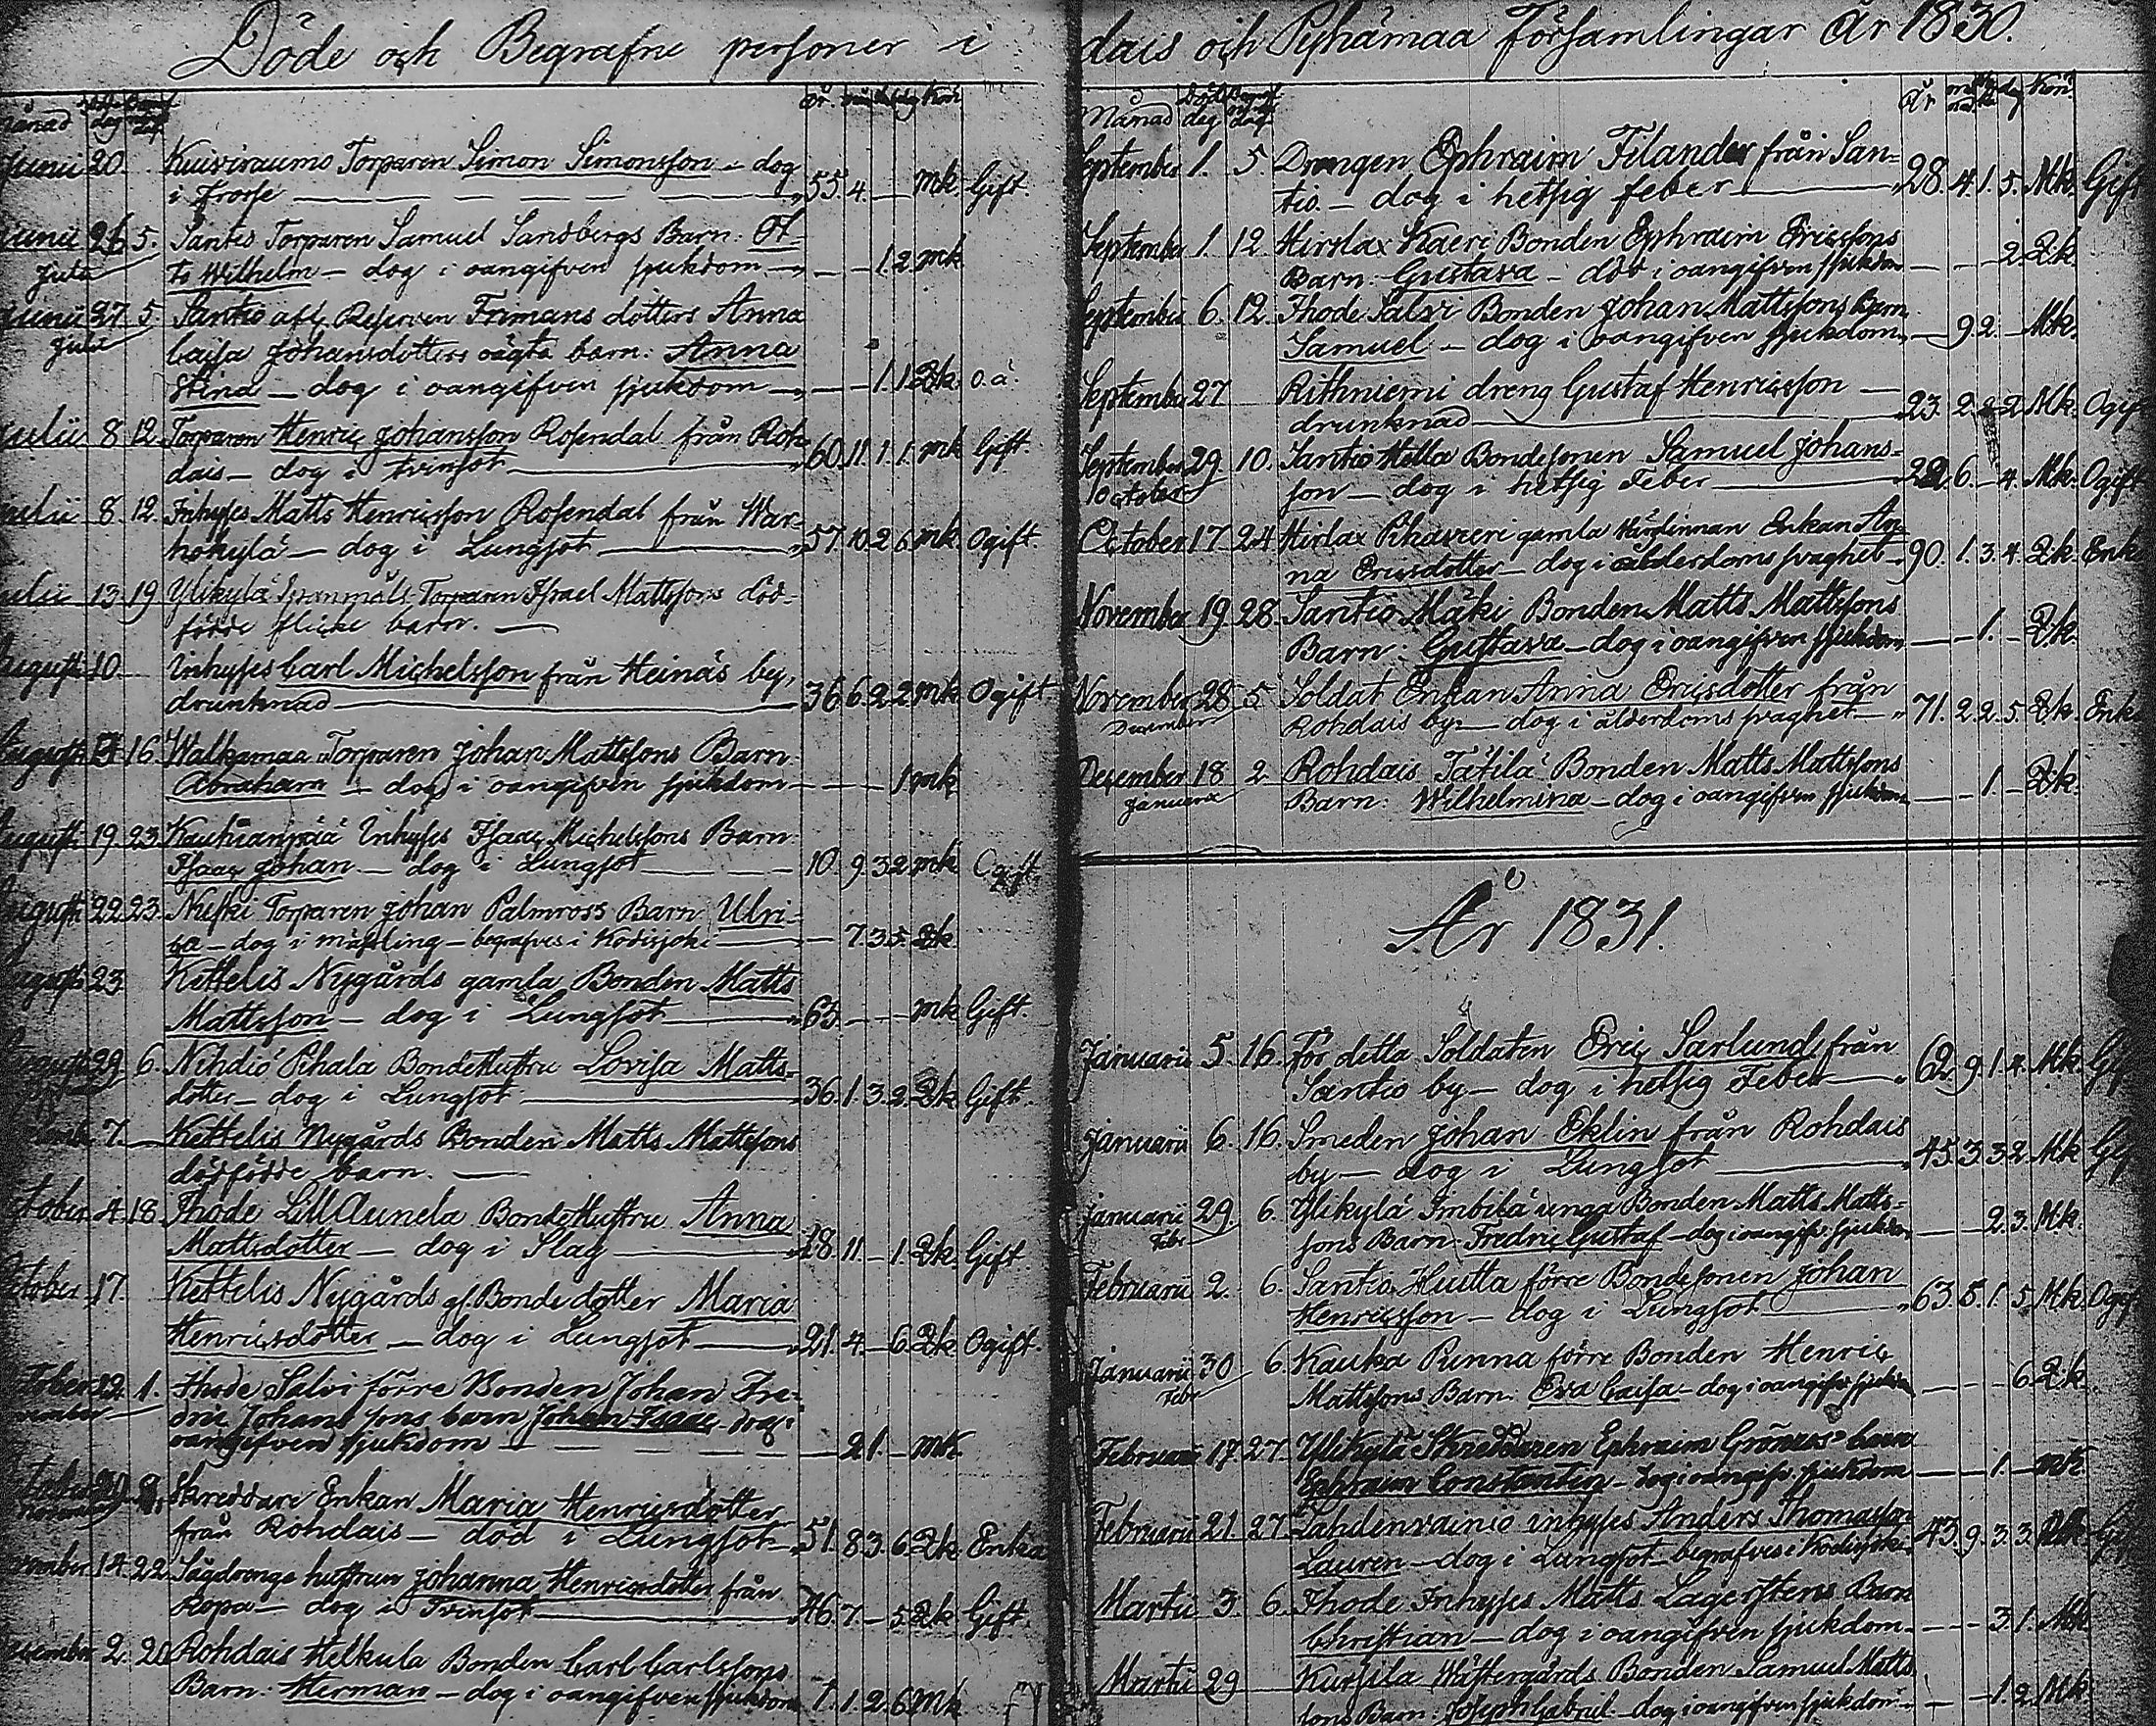 Döde och Begrafne personer i
Månad År Kön
Junii 20. Kuiviraums Torparen Simon Simonsson - dog
i Frosse 55. 4. mk. Gift.
Junii 26 5. Santio Torparen Samuel Sandbergs Barn: Ot-
Julii to Wilhelm - dog i oangifven sjukdom 1. 2 mk
Junii 27. 5. Santio Reserven Frimans dotters Anna
Julii Cajsa Johansdotters oägta barn: Anna
Stina - dog i oangifven sjukdom 1. 1. Qk. o.ä.
Julii 8. 12. Torparen Henric Johansson Rosendal från Roh-
dais - dog i tvinsot 60. 11. 1. 1. mk Gift.
Julii 8. 12. Inhyses Matts Henricsson Rosendal från War-
hokylä - dog i Lungsot 57. 10. 2 6 mk Ogift.
Julii 13. 19 Ylikylä Torparen Israel Mattssons död-
födde flicke barn.
Augusti 10 Inhyses Carl Michelsson från Heinäs by,
drunknad 36 6. 2 2 mk Ogift
Augusti 16. Walkamaa Torparen Johan Mattssons Barn
Abraham - dog i oangifven sjukdom 1 mk
Augusti 19. 23. Kaukianpää Inhyses Isaac Michelssons Barn:
Isaac Johan - dog i Lungsot 10. 9. 3 2 mk Ogift.
Augusti 22 23. Torparen Johan Palmross Barn Ulri-
ca - dog i mässling - begrafves i Kodisjoki 7. 3. 5. Qk
Augusti 23 Kettelis Nygårds gamla Bonden Matts
Mattsson - dog i Lungsot 63. mk Gift.
Augusti 29 6. Nihdiö Pihala Bonde Hustru Lovisa Matts-
dotter - dog i Lungsot 36. 1. 3. 2. Qk Gift.
7. Kettelis Nygårds Bonden Matts Mattssons
dödfödde barn.
October 4. 18. Ihode Lill Aunela Bonde Hustru Anna
Mattsdotter - dog i Slag 28. 11. 1. Qk. Gift.
October 17. Kettelis Nygårds gl. Bonde dotter Maria
Henricsdotter - dog i Lungsot 21. 4. 6. Qk Ogift.
October 1. Ihode Salvi förre Bonden Johan Fre-
dric Johans sons barn Johan Isaac dog i
oangifven sjukdom 2 1. mk.
October Skreddare Enkan Maria Henricsdotter
från Rohdais - död i Lungsot 51. 8 3. 6. Qk Enka
November 14. 22. Sågdrengs hustrun Johanna Henricsdotter från
Ropa - dog i Tvinsot 46. 7. 5 Qk Gift.
December 2. Rohdais Helkula Bonden Carl Carlssons
Barn: Herman - dog i oangifven sjukdom 1. 2 6 Mk
dais och Pyhämaa Församlingar År 1830.
Månad År Kön
September 1. 5. Drengen Ephraim Filander från San-
tio - dog i hetsig feber 28. 4. 1. 5. Mk. Gift
September 1. 12. Hirslax Kaeri Bonden Ephraim Ericssons
Barn: Gustava - död i oangifven sjukdom 2. Qk.
September 6. 12. Ihode Salvi Bonden Johan Mattssons Barn
Samuel - dog i oangifven sjukdom 9 2. Mk.
September 27 Rithniemi dreng Gustaf Henricsson
drunknad 23. 2. 2 Mk. Ogift
September 29. 10. Santio Hella Bondesonen Samuel Johans-
October son - dog i hetsig Feber 22. 6. 4. Mk. Ogift
October 17. 24 Hirslax Pihavieri gamla Enkan An-
na Ericsdotter - dog i ålderdoms svaghet 90. 1. 3. 4. Qk Enk
November 19. 28. Santio Mäki Bonden Matts Mattssons
Barn: Gustava - dog i oangifven sjukdom 1. Qk.
November 28 5 Soldat Enkan Anna Ericsdotter från
December Rohdais by - dog i ålderdoms svaghet 71. 2. 2. 5. Qk. Enka
December 18 2 Rohdais Tätilä Bonden Matts Mattssons
Januarii Barn: Wilhelmina - dog i oangifven sjukdom 1. Qk.
År 1831.
Januarii 5. 16. För detta Soldaten Eric Sarlund från
Santio by - dog i hetsig Feber 62. 9. 1. 4. Mk. Gif
Januarii 6. 16. Smeden Johan Eklin från Rohdais
by - dog i Lungsot 45. 3 3 2. Mk Gif
Januarii 29. 6. Ylikylä Imbilä unga Bonden Matts Matts-
Febr sons Barn Fredric Gustaf - dog i oangifv. sjukdom 2. 3. Mk.
Februarii 2. 6. Santio Hutta förre Bondesonen Johan
Henricsson - dog i Lungsot 63. 8. 1. 5. Mk. Ogif
Januarii 30 6. Kauka Punna förre Bonden Henric
Febr Mattssons Barn: Eva Caisa - dog i oangifv. sjukdom 6. Qk
Februarii 17. 27. Ylikylä Skreddaren Ephraim Grönroos barn
Ephraim Constantin - dog i oangifv. sjukdom 1. mk
Februarii 21. 27. Lahdenvainio inhyses Anders Thomasson
Lauren - dog i Lungsot - begrafves i Kodisjoki 43. 9. 3. 3. Mk Gif
Martii 3. 6. Ihode Inhyses Matts Lagerstens Barn
Christian - dog i oangifven sjukdom 3. 1. Mk
Martii 29 Kursila Wästergårds Bonden Samuel Matts-
sons Barn: Joseph Gabriel - dog i oangifven sjukdom 1. 2. Mk